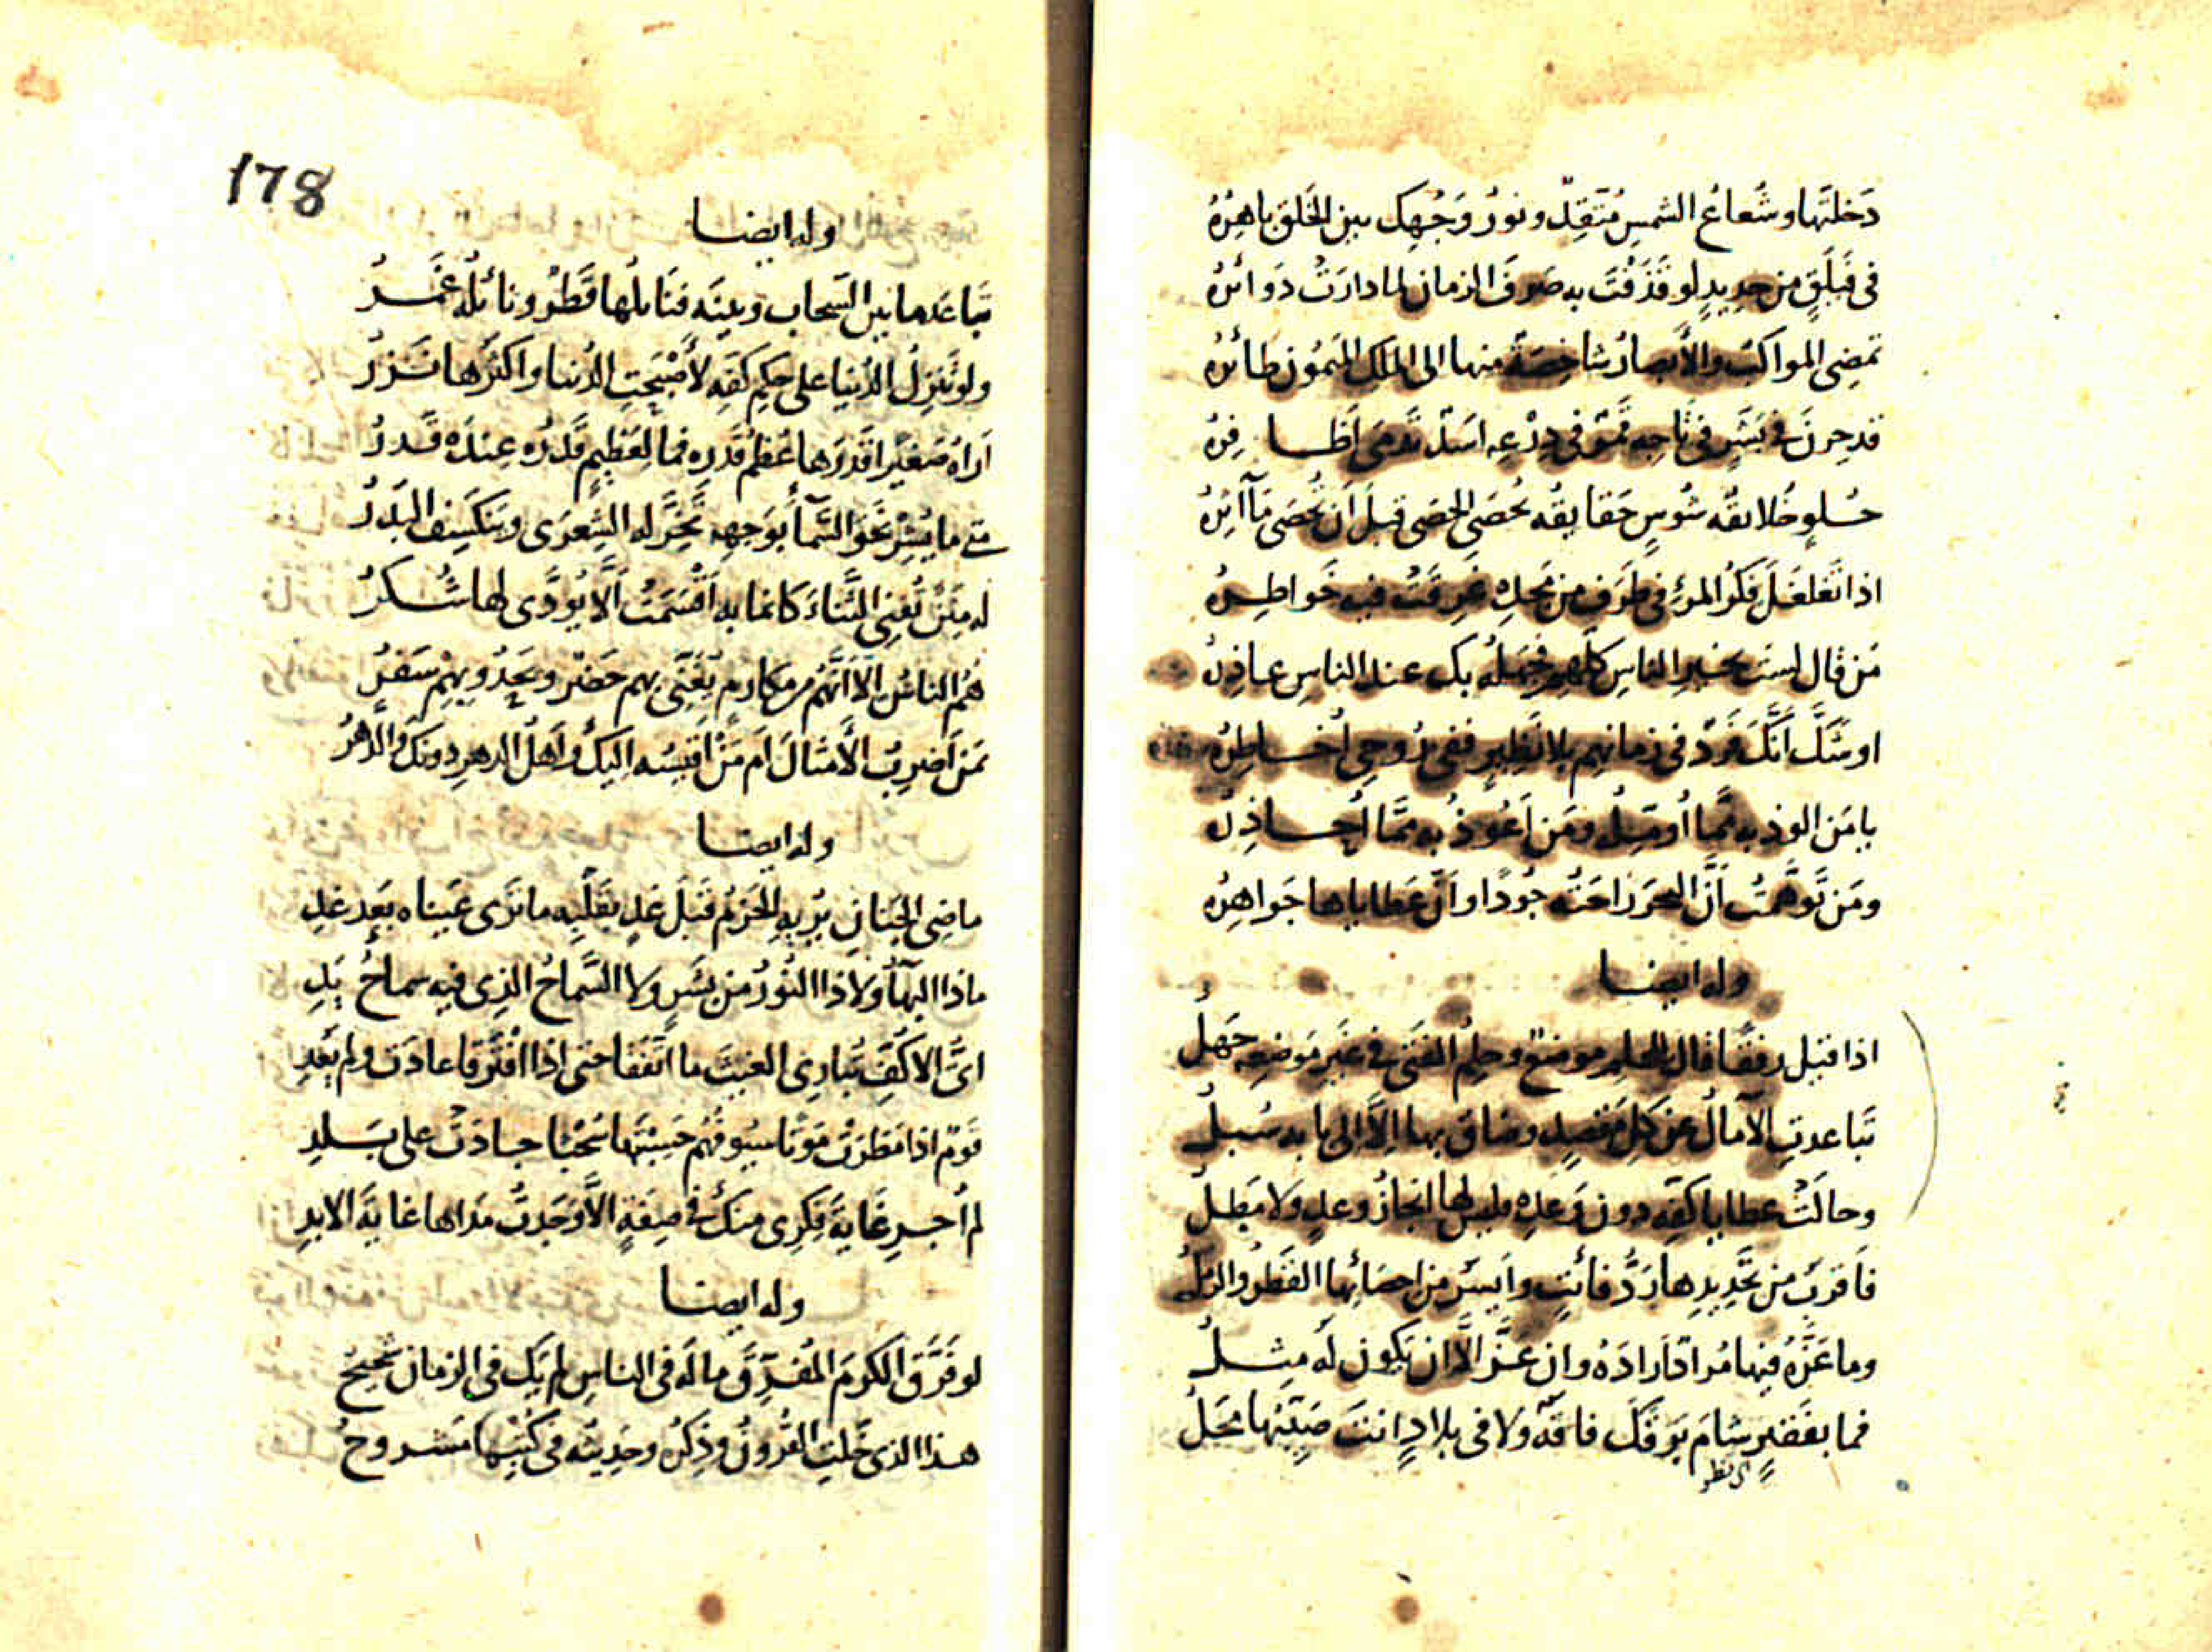 دَخلتَها وشُعاعُ الشمسِ مُتّقِدٌ ونورُ وَجْهِكَ بين الخَلقِ باهِرُهُ
فى فَيلَقٍ من حديدٍ لو قَذَفْتَ به صَرفَ الزمانِ لما دارَتْ دَوائرُهُ
تمضِى المواكبُ والأبصارُ شاخِصَةٌ منها الى الملكِ الميمُونِ طائرُهُ
قد حِرنَ فى بَشَرٍ فى تاجِه قَمَرٌ فى دِرْعِه اسَدٌ تَدمَى أظافِرُهُ
حُلوٍ خلائقُه شُوسٍ حَقايقُه تُحصَى الحصَى قبلَ اَن تُحصَى مَآاثِرُهُ
اذا تَغلغَلَ فِكرُ المرءِ فى طَرَفٍ من مَجدِهِ غَرِقَتْ فيه خَواطِرُهُ
مَن قال لستَ بخيرِ الناسِ كلِّهم فجَهلُه بك عند الناسِ عاذِرُهُ
او شَكَّ اَنَّكَ فَردٌ فى زمانهم بلا نَظيرٍ ففى رُوحِى اُخاطِرُهُ
يا مَن الوذ به فيما اُومّلُه ومَن اَعُوذُ به ممّا اُحاذِرُهُ
ومَن تَوهَّمتُ اَنَّ البحرَ راحَتُه جُودًا واَنَّ عَطاياها جَواهِرُه
وله ايضا
اذا قيل رفقًا قال للحلمِ موضعٌ وحِلمُ الفَتَى فى غَيرِ مَوضعِه جَهلُ
تباعدتِ الآمالُ عن كلِ مَقصِدٍ وضاق بها الّا الى بابه سُبلُ
وحالَتْ عطايا كفّه دون وَعدِهِ فليس لها انجازُ وعدٍ ولا مَطلُ
فاَقربُ من تَحديدِها رَدُّ فائتٍ واَيسَرُ من احصائِها القَطرُ والرملُ
وما عَزَّهُ فيها مُرادٌ اَرادَهُ وان عَزَّ الّا ان يكون لَه مِثلُ
فما بفَقيرٍ شامَ بَرقَكَ فاقَةٌ ولا فى بلادٍ انتَ صَيّبُها مَحلُ
اى نظر
178
وله ايضا
تَباعَدَ ما بين السَحابِ وبينَه فنَائلُها قَطرٌ ونائلُه غَمْرُ
ولو تَنزِلُ الدُنيا على حكمِ كَفّهِ لأصْبَحتِ الدُنيا واكثرُها نَزرُ
اَراهُ صَغيرًا قَدرَها عُظمُ قَدرِه فما لِعَظيمٍ قَدرُه عِندَه قَدرُ
متى ما يُشِرْ نَحوَ السَّمآءِ بوَجهِه تَخِرَّ له الشِعرَى وينكَسِفِ البَدرُ
له مِنَنٌ تُفنِى الثَّناءَ كانما به اَقْسَمَتْ اَلّا يُودَّى لها شُكرُ
هُمُ الناسُ الّا اَنّهُم من مكارمٍ يُغَنّى بهم حَضَرٌ ويَحدُو بهِمْ سَفرُ
بمَن اَضرِبُ الأمثالَ اَم مَن اَقِيسُه اليكَ واَهلُ الدهرِ دونكَ والدهرُ
وله ايضا
ماضى الجَنانِ يُرِيهِ الحَزمُ قَبلَ غدٍ بقَلبِه ما تَرَى عَيناه بَعدَ غدِ
ماذا البَهآءُ ولا ذا النُورُ من بَشَرٍ ولا السَّماحُ الذى فيه سماحُ يَدِ
اىُّ الاكُفِّ تُبارِى الغيثَ ما اتّفقا حتى اذا افْتَرقا عادَت ولم يَعُدِ
قَومٌ اذا مَطَرَتْ مَوتًا سيُوفُهُم حَسِبْتَها سُحُبًا جادَتْ على بَلدِ
لم اُجرِ غَايةَ فِكرِى منكَ فى صِفَةٍ الّا وَجَدتُ مَداها غايةَ الابدِ
وله ايضا
لو فَرَّق الكرمَ المُفرّقَ مالَه فى الناسِ لم يَكُ فى الزمانِ شَحِيحُ
هذا الذى خَلَتِ القُرونُ وذِكرُه وحَدِيثُه فى كُتْبِها مَشروحُ